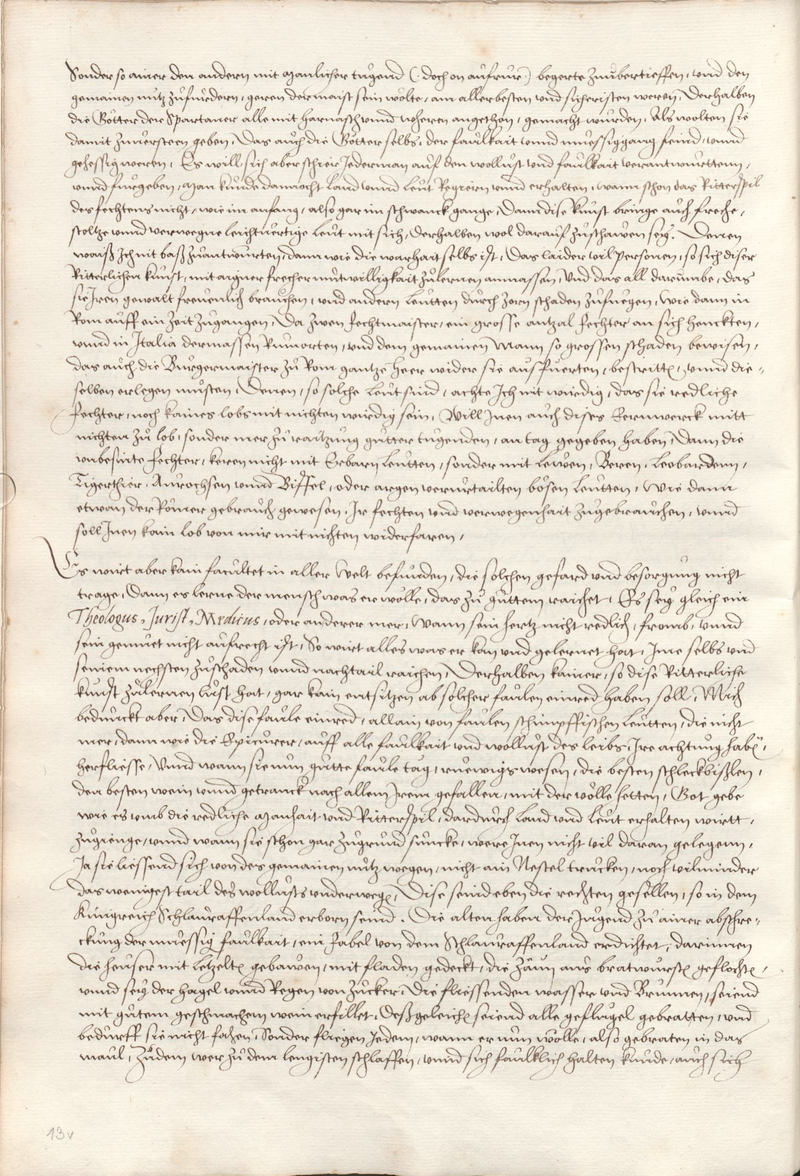 Sonder so ainer den andern mit manlicher tugend (: doch on aufrur :) begerte zuubertreffen, vnd den
gemainen nutz zufurdern, geren der maist sein wolte, am allerbesten vnd sicheristen weren, Derhalben
die Götter der Spartaner alle mit harnasch vnd wöheren angethon, gemacht wurden, Als wolten sie
damit zuuersteen geben, Das auch die Götter selbs, der faulkait vnnd muessiggang feind, vnnd
gehessig weren, Es will sich aber schier Jederman auf den wollust vnd faulkait verantwurtten,
vnnd furgeben, man kunde dannocht Land vnnd leut Regiern vnnd erhalten, wann schon das Ritterspil
des fechtens nicht, wie im anfang, also gar im schwanck gange, Dann dise kunst bringe auch freche,
stoltze vnnd verwegne leichtuertige leut mit sich, derhalben wol darauf zuschawen sey. Denen
waiß Ich nit baß zuantwurten, dann wie die warhait selbs ist, Das laider vil personen, so sich diser
Ritterlichen kunst, mit arger frecher mutwilligkait zulernen anmassen, Vnd das all darumbe, das
sie Iren gewalt freuenlich brauchen, vnd andern leutten durch zorn schaden zufuegen, Wie dann in
Rom auff ein Zeit zugangen, Da zwen fechtmaister, ein grosse antzal fechter an sich henckten,
vnnd in Italia dermassen Rumorten, vnd dem gemainen Mann so grossen schaden bewisen,
das auch die Burgermaister zu Rom gantze heer wider sie aus fuerten, bestritten, vnnd die=
selben erlegen musten, Denen, so solche leut sind, achte Ich nit wirdig, das sie redliche
fechter, noch kaines lobs mit nichten wirdig sein, Will Inen auch dises Eernwerck mitt
nichten zu lob, sonder mer zu raitzung gutter tugenden, an tag gegeben haben, Dann die
vnbesinte fechter, keren nicht mit Erbarn leutten, sonder mit lewen, Beren, Leobardenn,
Tigerthier, Aurochsen vnnd Biffel, oder argen verurtailten bösen leutten, Wie dann
etwan der Römer gebrauch gewesen, Ir fechten vnd verwegenhait zugebrauchen, vnnd
soll Inen kain lob von mir mit nichten widerfaren,
Es wirt aber kain facultet in aller Welt befunden, die solchen gefard vnd besorgung nicht
trage, Dann es lerne der mensch was er wölle, das zu guttem raichet, Es sey gleich ein
Theologus, Jurist, Medicus, oder anderer mer, Wann sein hertz nicht redlich, fromb, vnnd
sein gemuet nicht aufrecht ist, So wirt alles was er kan vnd gelernet hat, Ime selbs vnd
seinem nechsten zuschaden vnnd nachtail raichen, Derhalben kainer, so dise Ritterliche
kunst zulernen lust hat, gar kain entsitzen ab solcher faulen einred haben soll, Mich
bedunckt aber, Das dise faule einred, allain von faulen schimpffischen leutten, die nicht
mer, dann wie die Epicurer, auff alle faulkait vnd wollust des leibs Ire achtung haben,
herfliesse, Vnnd wann sie nun gutte faule tag, ruewigs wesen, die besten schleckbißlen,
den besten wein vnnd getranck nach allem Irem gefallen, mit der wölle hetten, Got gebe
wie es vmb die redliche manhait vnd Ritterspil, dardurch Land vnd leut erhalten wirtt,
zugienge, vnnd wann sie schon gar zugrund suncke, were Inen nicht vil daran gelegenn,
Ja sie liessend sich von des gemainen nutz wegen, nicht ain Nestel trucken, noch vil minder
das wenigest tail des wollusts vnderwegen, Dise seind eben die rechten gesellen, so in dem
Kunigreich Schlauraffenland erborn seind. Die alten haben der Jugend zu ainer abschre=
ckung der muessig faulkait, ein fabel von dem Schlauraffenland erdichtet, darinnen
die heuser mit lebzelten gebawen, mit fladen gedeckt, die Zäun aus bratwursten geflochten,
vnnd sey der hagel vnnd Regen von Zucker, Die fliessenden wasser vnd Brunnen, seiend
mit gutem geschmachem wein erfillet, Deßgeleichen seiend alle geflugel gebratten, vnd
bedurff sie nicht fahen, Sonder fliegen Jedem, wann er nun wölle, also gebraten in das
maul, Zudem wer zu dem lengisten schlaffen, vnnd sich faulklich halten kunde, auch sich
13v